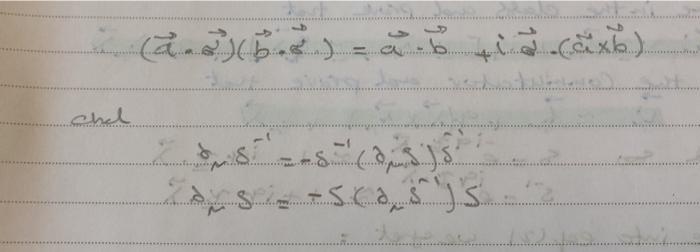 (a⃗·σ⃗)(b⃗·σ⃗) = a⃗·b⃗ + i σ⃗·(a⃗×b⃗)
and
∂_μ S⁻¹ = -S⁻¹(∂_μ S)S⁻¹
∂_μ S = -S(∂_μ S⁻¹)S